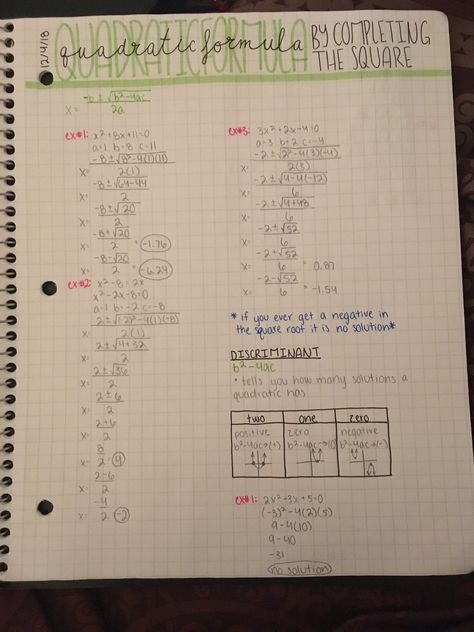 12/4/18
QUADRATIC FORMULA
quadratic formula BY COMPLETING
THE SQUARE
x= -b ± √b²-4ac
2a
ex#1: x²+8x+11=0
a=1 b=8 c=11
x= -8 ± √8²-4(1)(11)
2(1)
x= -8 ± √64-44
2
x= -8 ± √20
2
x= -8 + √20
2 = -1.76
x= -8 - √20
2 = -6.24
ex#2: x²-8=2x
x²-2x-8=0
a=1 b=-2 c=-8
x= 2 ± √(-2)²-4(1)(-8)
2(1)
x= 2 ± √4+32
2
x= 2 ± √36
2
x= 2 ± 6
2
x= 2+6
2
x= 8
2 = 4
x= 2-6
2
x= -4
2 = -2
ex#3: 3x²+2x-4=0
a=3 b=2 c=-4
x= -2 ± √2²-4(3)(-4)
2(3)
x= -2 ± √4-4(-12)
6
x= -2 ± √4+48
6
x= -2 ± √52
6
x= -2 + √52
6 = 0.87
x= -2 - √52
6 = -1.54
* if you ever get a negative in
the square root it is no solution*
DISCRIMINANT
b²-4ac
• tells you how many solutions a
quadratic has
two one zero
positive zero negative
b²-4ac→(+) b²-4ac→(0) b²-4ac→(-)
ex#1: 2x²-3x+5=0
(-3)²-4(2)(5)
9-4(10)
9-40
-31
no solution